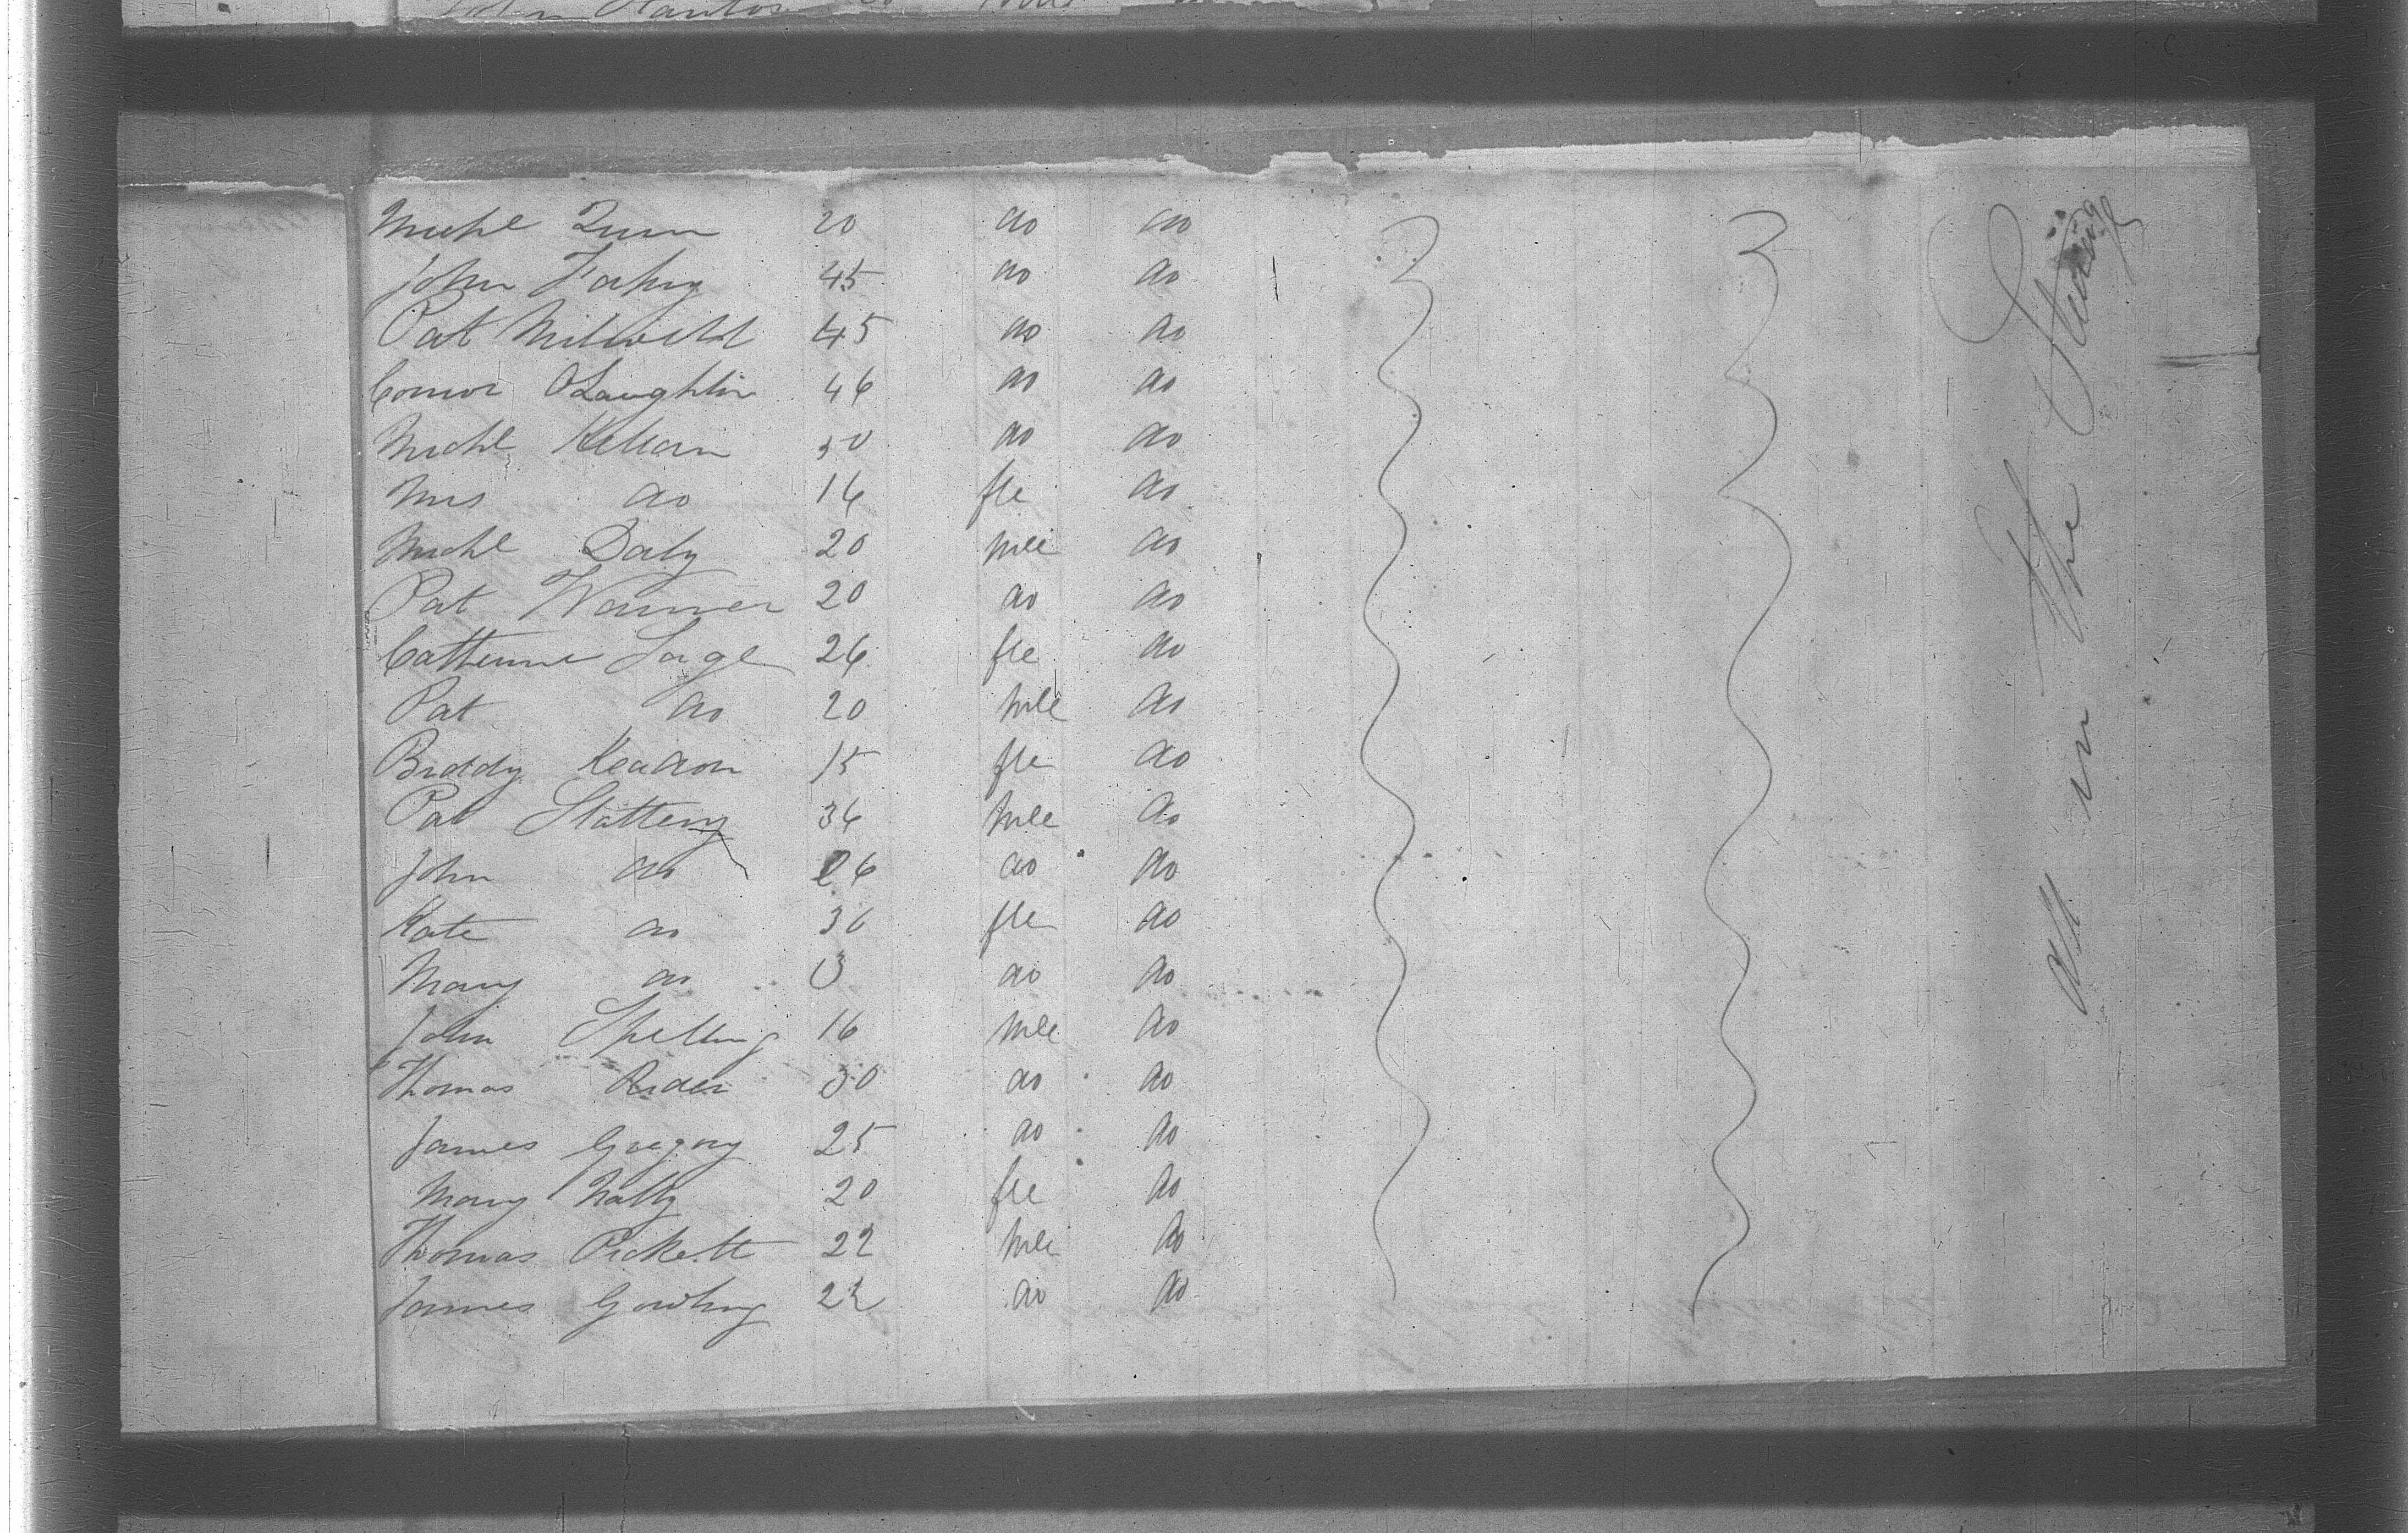 Michl Quin 20 do do
John Fahy 45 do do
Pat 45 do do
Connor OLaughlin 46 do do
Michl Killian do do
Mrs do 16 fle do
Michl Daly 20 mle do
Pat 20 do do
Catherine 26 fle do
Pat do 20 mle do
Biddy 15 fle do
Pat Slattery 36 mle do
John do 26 do do
Kate do 36 fle do
Mary do do do
John Spelling 16 mle do
Thomas Rider 30 do do
James Gregory 25 do do
Mary Nally 20 fle do
Thomas Pickett 22 mle do
James Gowling 22 do do
all in the Steerage